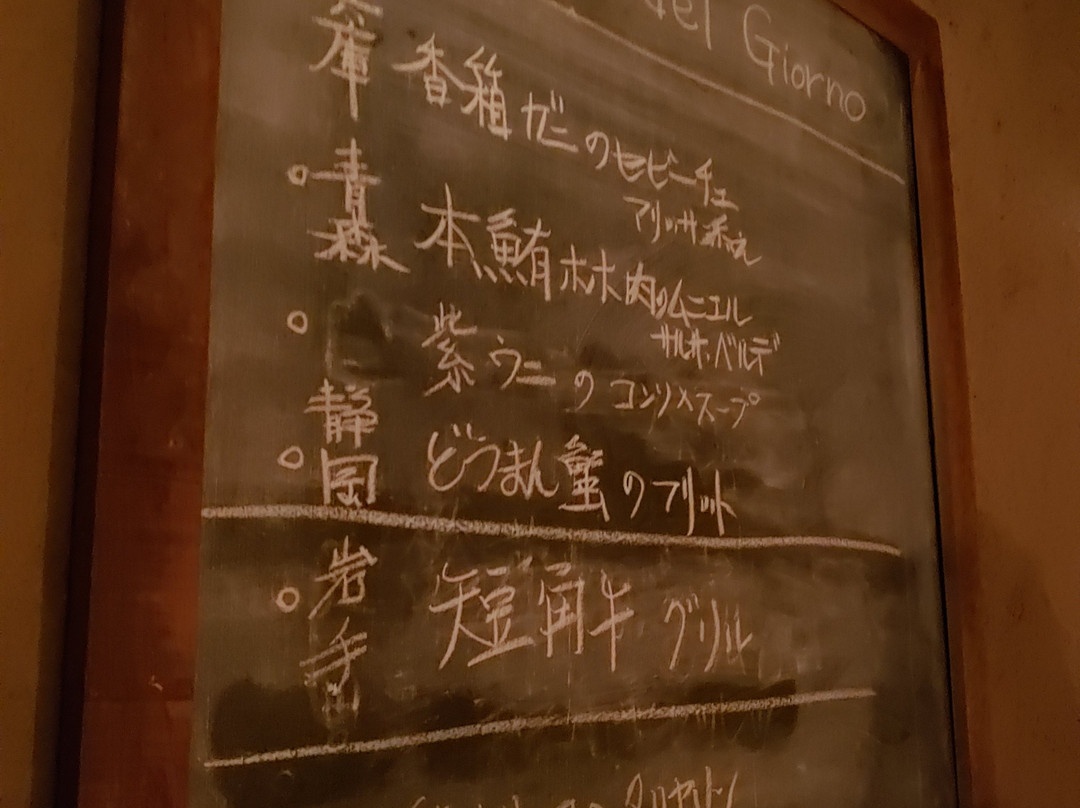 del Giorno
兵庫 香箱ガニのセビーチェ
アリッサ和え
青森 本鮪ホホ肉のムニエル
サルサ・ベルデ
紫ウニのコンソメスープ
静岡 どうまん蟹のフリット
岩手 短角牛グリル